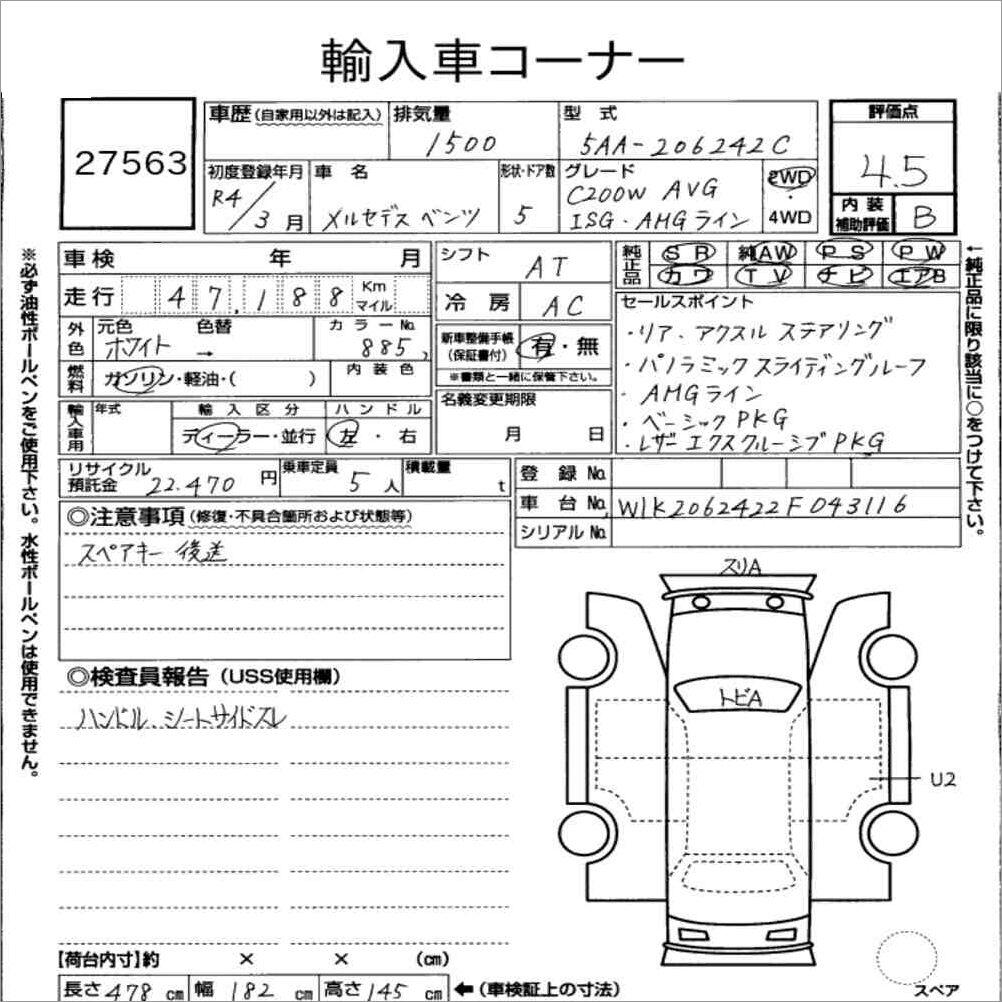 輸入車コーナー
27563
車歴 (自家用以外は記入)
排気量
1500
型式
5AA-206242C
評価点
4.5
内装補助評価 B
初度登録年月
R4/3月
車名
メルセデスベンツ
形状・ドア数
5
グレード
C200W AVG
ISG・AMGライン
2WD
・
4WD
車検 年 月
走行 47,188 Km マイル
外色
元色 ホワイト
色替 →
カラーNo. 885
燃料 ガソリン・軽油・( )
内装色
シフト AT
冷房 AC
新車整備手帳(保証書付) 有・無
※書類と一緒に保管下さい。
純正品
SR 純AW PS PW
カワ TV ナビ エアB
セールスポイント
・リア、アクスルステアリング
・パノラミックスライディングルーフ
・AMGライン
・ベーシックPKG
・レザーエクスクルーシブPKG
輸入車用
年式
輸入区分
ディーラー・並行
ハンドル
左・右
名義変更期限
月 日
リサイクル預託金 22.470 円
乗車定員 5人
積載量 t
登録No.
車台No. W1K2062422F043116
シリアルNo.
◎注意事項 (修復・不具合箇所および状態等)
スペアキー後送
◎検査員報告 (USS使用欄)
ハンドル、シートサイドスレ
スリA
トビA
U2
スペア
【荷台内寸】約 × × (cm)
長さ 478 cm 幅 182 cm 高さ 145 cm ←(車検証上の寸法)
※必ず油性ボールペンをご使用下さい。水性ボールペンは使用できません。
←純正品に限り該当に○をつけて下さい。